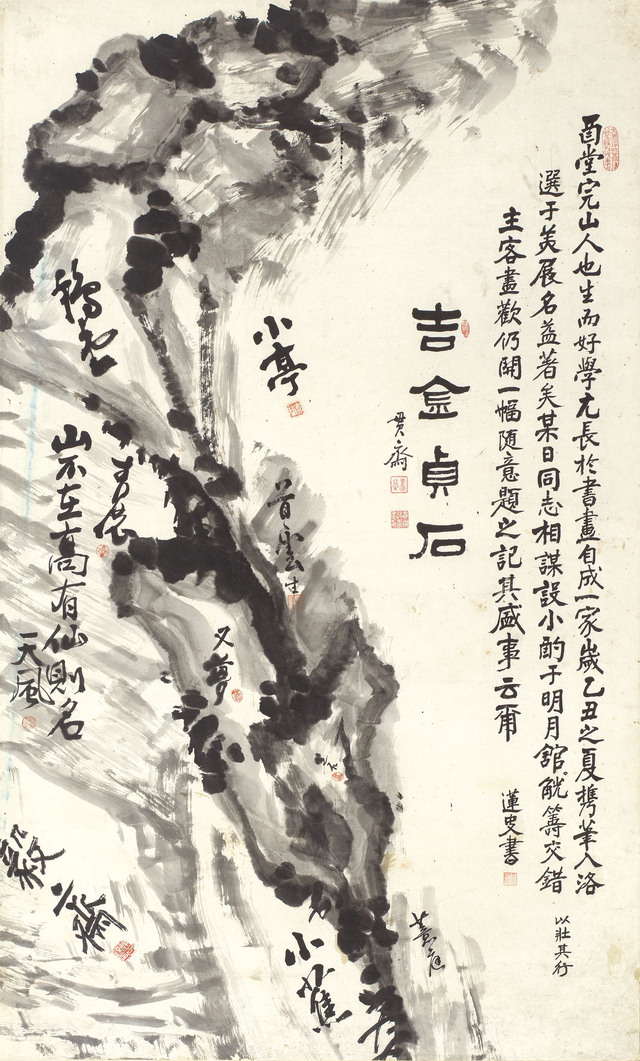 酉堂完山人也生而好學尤長於書畫自成一家歲乙丑之夏攜筆入洛
選于美展名益著矣某日同志相謀設小酌于明月舘觥籌交錯
以壯其行
主客盡歡仍開一幅隨意題之記其盛事云爾
蓮史書
吉金貞石
貫齋
小亭
又夢
小蕉
山不在高有仙則名
天風
毅齋